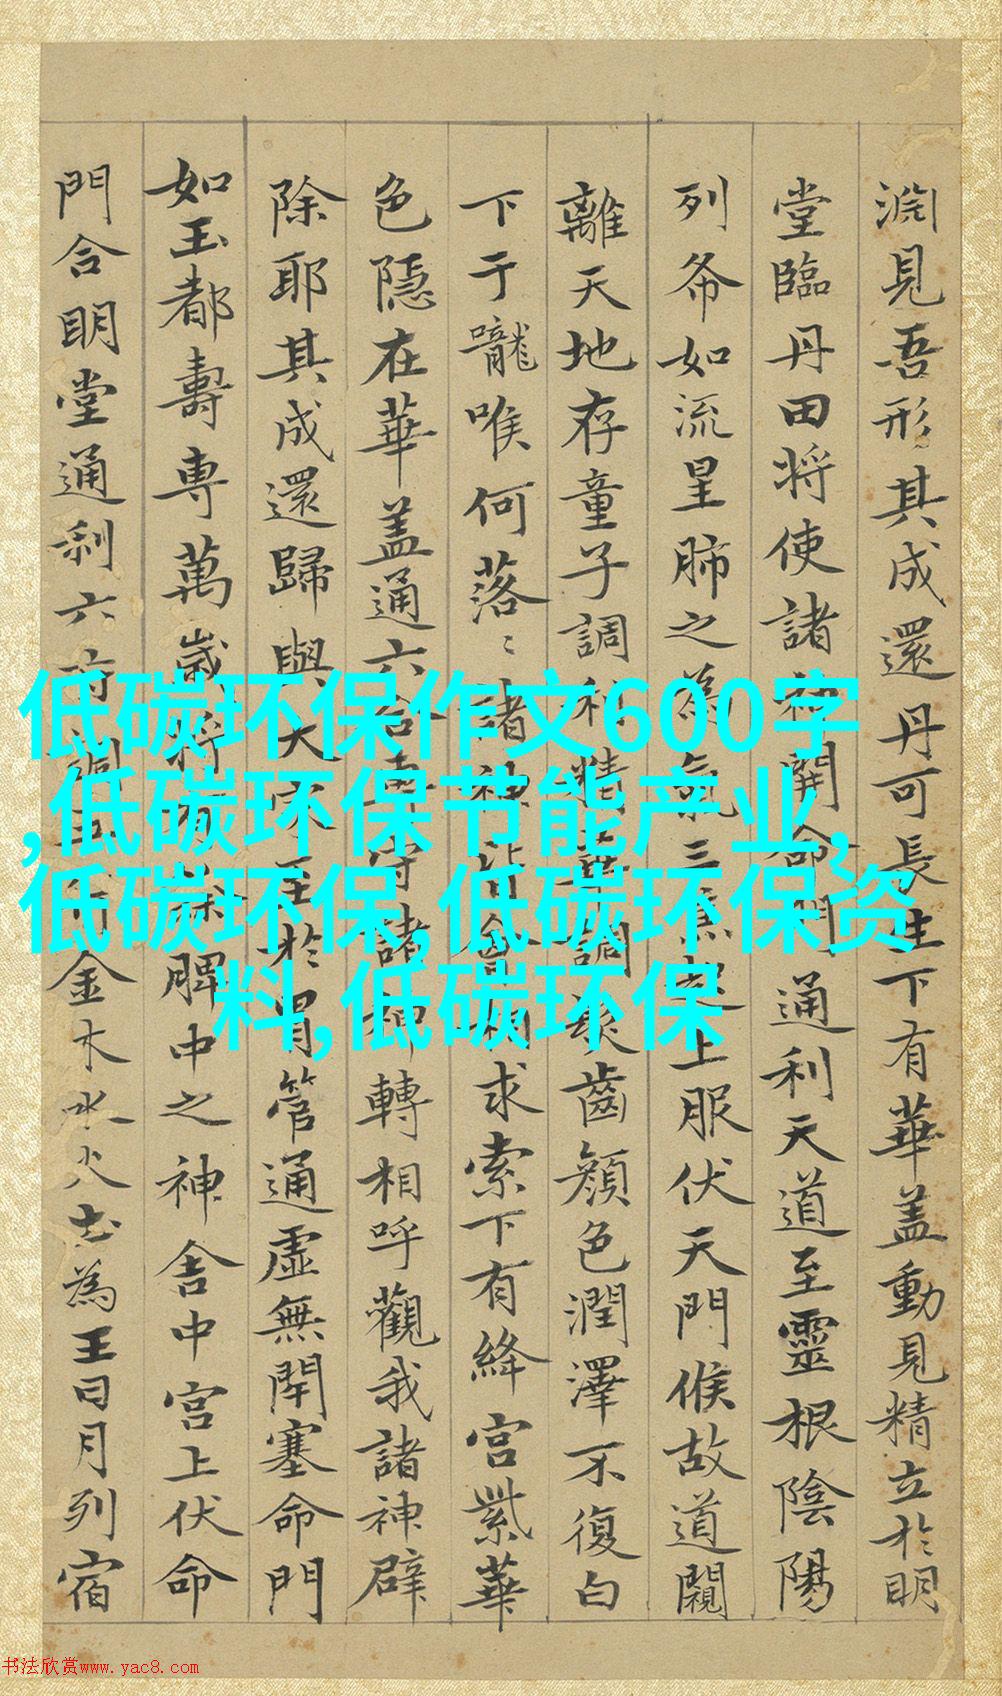 淵見吾形其成還丹可長生下有華盖動見精立於明
堂臨丹田将使諸神開命門通利天道至靈根陰陽
列布如流星肺之為氣三焦起上服伏天門候故道闚
離天地存童子調利精華調髮齒顏色潤澤不復白
下于嚨喉何落〻諸神皆會相求索下有絳宮紫華
色隱在華盖通六合專守諸神轉相呼觀我諸神辟
除耶其成還歸與大家至於胃管通虛無閉塞命門
如玉都壽專萬歲将有餘脾中之神舍中宮上伏命
門合明堂通利六府調五行金木水火土為王日月列宿
低碳环保作文600字
,低碳环保节能产业,
低碳环保,低碳环保资
料,低碳环保
书法欣赏www.yac8.com